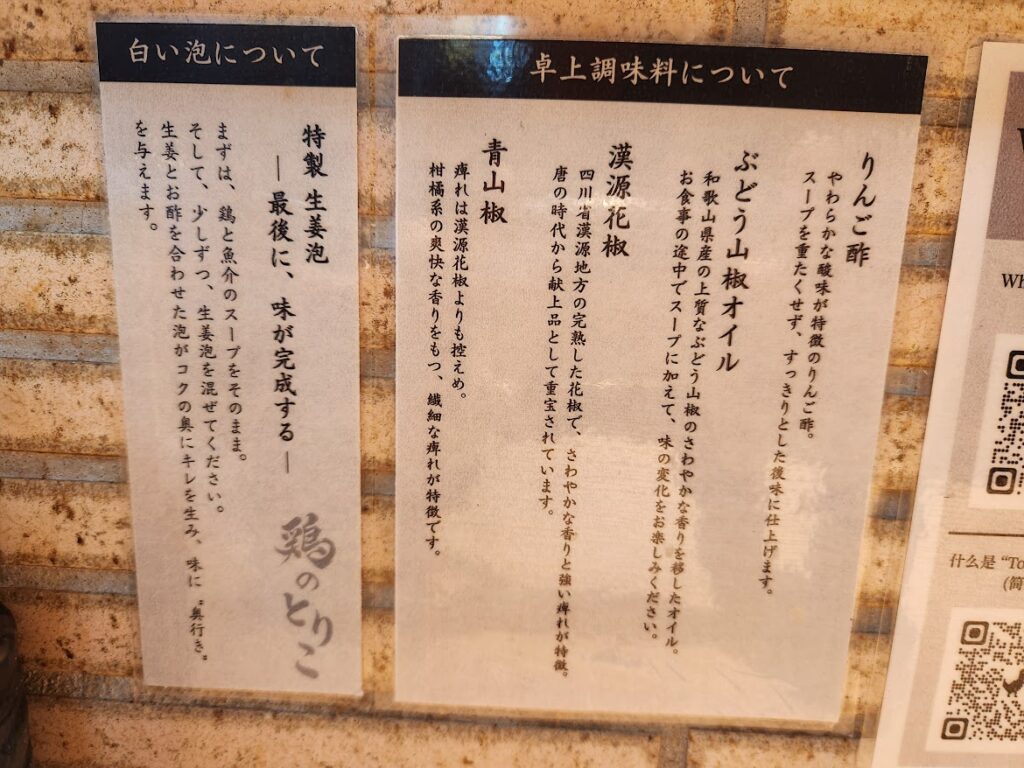 白い泡について
特製 生姜泡
― 最後に、味が完成する ―
まずは、鶏と魚介のスープをそのまま。
そして、少しずつ、生姜泡を混ぜてください。
生姜とお酢を合わせた泡がコクの奥にキレを生み、味に〝奥行き〟
を与えます。
鶏のとりこ
卓上調味料について
りんご酢
やわらかな酸味が特徴のりんご酢。
スープを重たくせず、すっきりとした後味に仕上げます。
ぶどう山椒オイル
和歌山県産の上質なぶどう山椒のさわやかな香りを移したオイル。
お食事の途中でスープに加えて、味の変化をお楽しみください。
漢源花椒
四川省漢源地方の完熟した花椒で、さわやかな香りと強い痺れが特徴。
唐の時代から献上品として重宝されています。
青山椒
痺れは漢源花椒よりも控えめ。
柑橘系の爽快な香りをもつ、繊細な痺れが特徴です。
什么是 “To